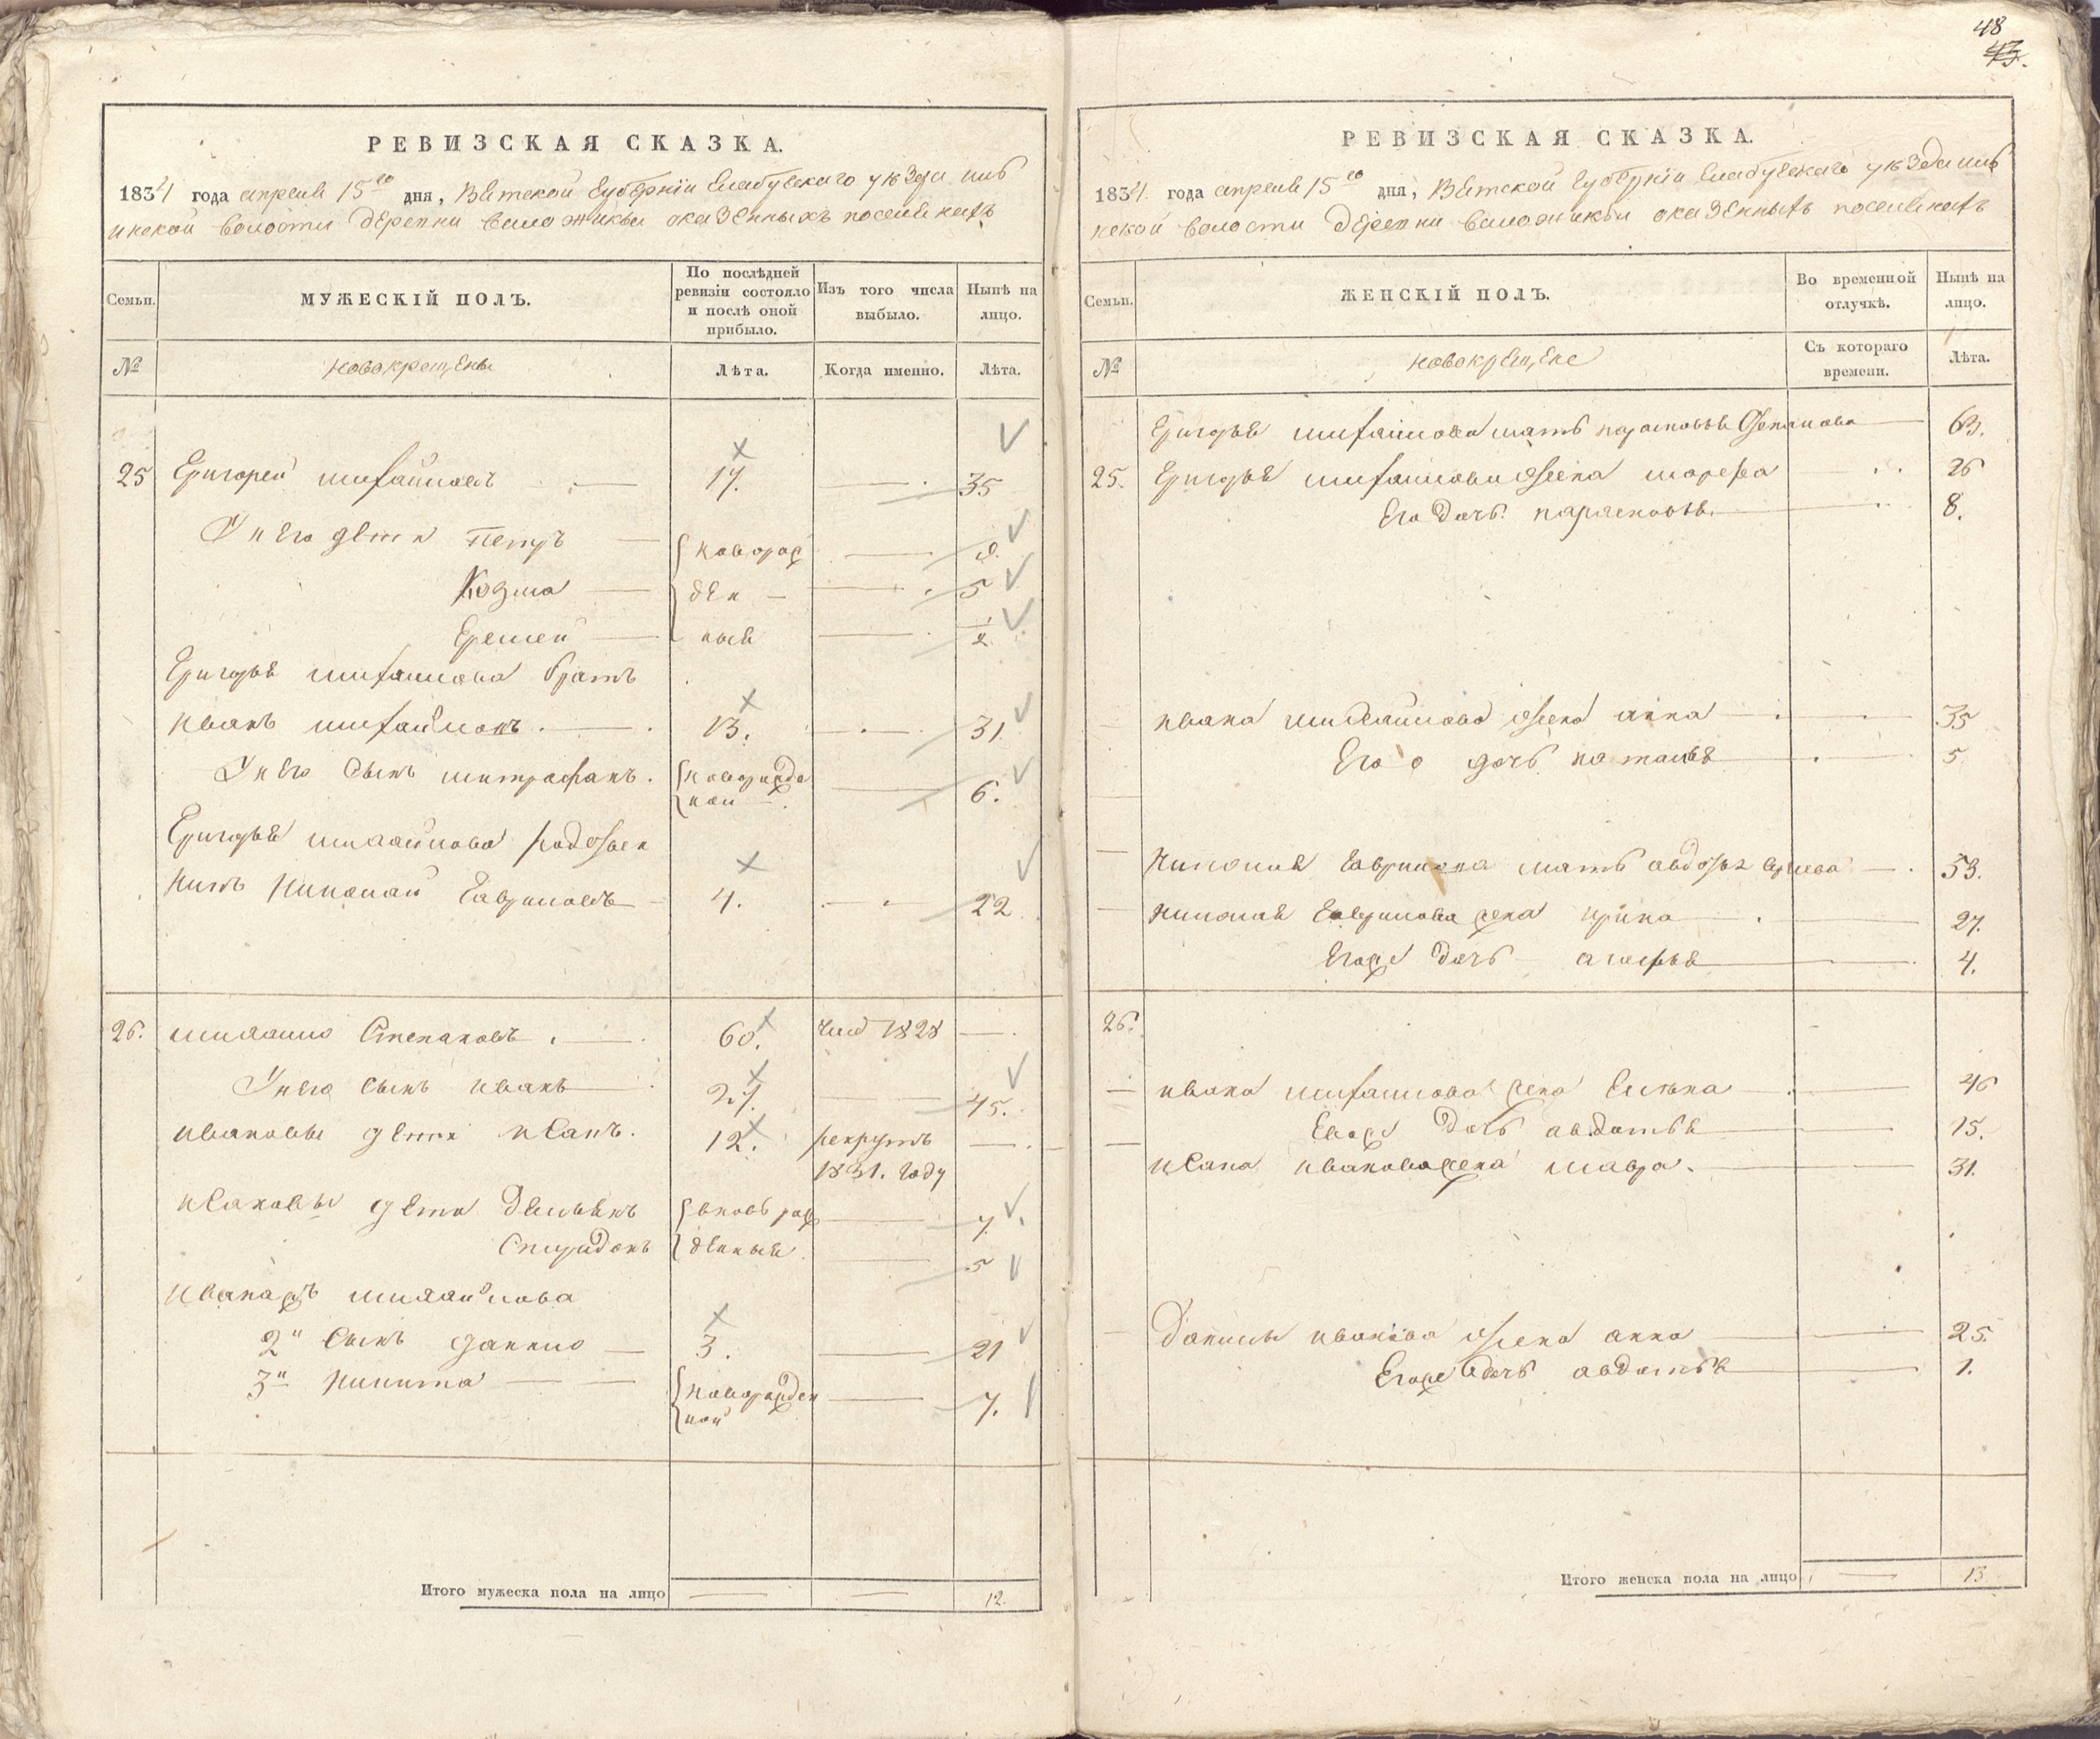 48
43.
РЕВИЗСКАЯ СКАЗКА.
1834 года апреля 15го дня, Вятской губернiи Елабугскаго уезда
волости деревни оказенныхъ поселянахъ
Семьи.
МУЖЕСКІЙ ПОЛЪ.
По послѣдней ревизіи состояло и послѣ оной прибыло.
Изъ того числа выбыло.
Нынѣ на лицо.
№
новокрещены
Лѣта.
Когда именно.
Лѣта.
25 Григорей михайловъ 17. 35
У него дети Петръ новорож 9.
Козма ден 5
Ермей ныя 1/2
Григорья михайлова братъ
иванъ михайловъ. 13. 31
У него сынъ митрофанъ. новорожде ной 6.
Григорья михайлова родствен
никъ николай Гавриловъ 4. 22
26. михайло Степановъ. 60. 1828
У него сынъ иванъ 27. 45.
ивановы дети исакъ. 12. рекрутъ
1831. году
исаковы дети Демьянъ вновь рож 7.
Спиридонъ денныя 5
иванажъ михайлова
2й сынъ данило 3. 21
3й никита новорожден ной 7.
Итого мужеска пола на лицо 12.
РЕВИЗСКАЯ СКАЗКА.
1834 года апреля 15го дня, Вятской губернiи Елабугскаго уезда
волости деревни оказенныхъ поселянахъ
Семьи.
ЖЕНСКІЙ ПОЛЪ.
Во временной отлучкѣ.
Нынѣ на лицо.
№
новокрещене
Съ котораго времени.
Лѣта.
Григорья михайлова мать парасковья Степанова 63.
25. Григорья михайлова жена марфа 26
Его дочь парасковья 8.
ивана михайлова жена анна 35
Его дочь наталья 5
николая Гаврилова мать авдотья 53.
николая Гаврилова жена ирина 27.
Егоже дочь агафья 4.
26.
ивана михайлова жена Елена 46
Егоже дочь авдотья 15.
исака иванова жена мавра. 31.
Данилы иванова жена анна 25.
Егоже дочь авдотья 1.
Итого женска пола на лицо 13